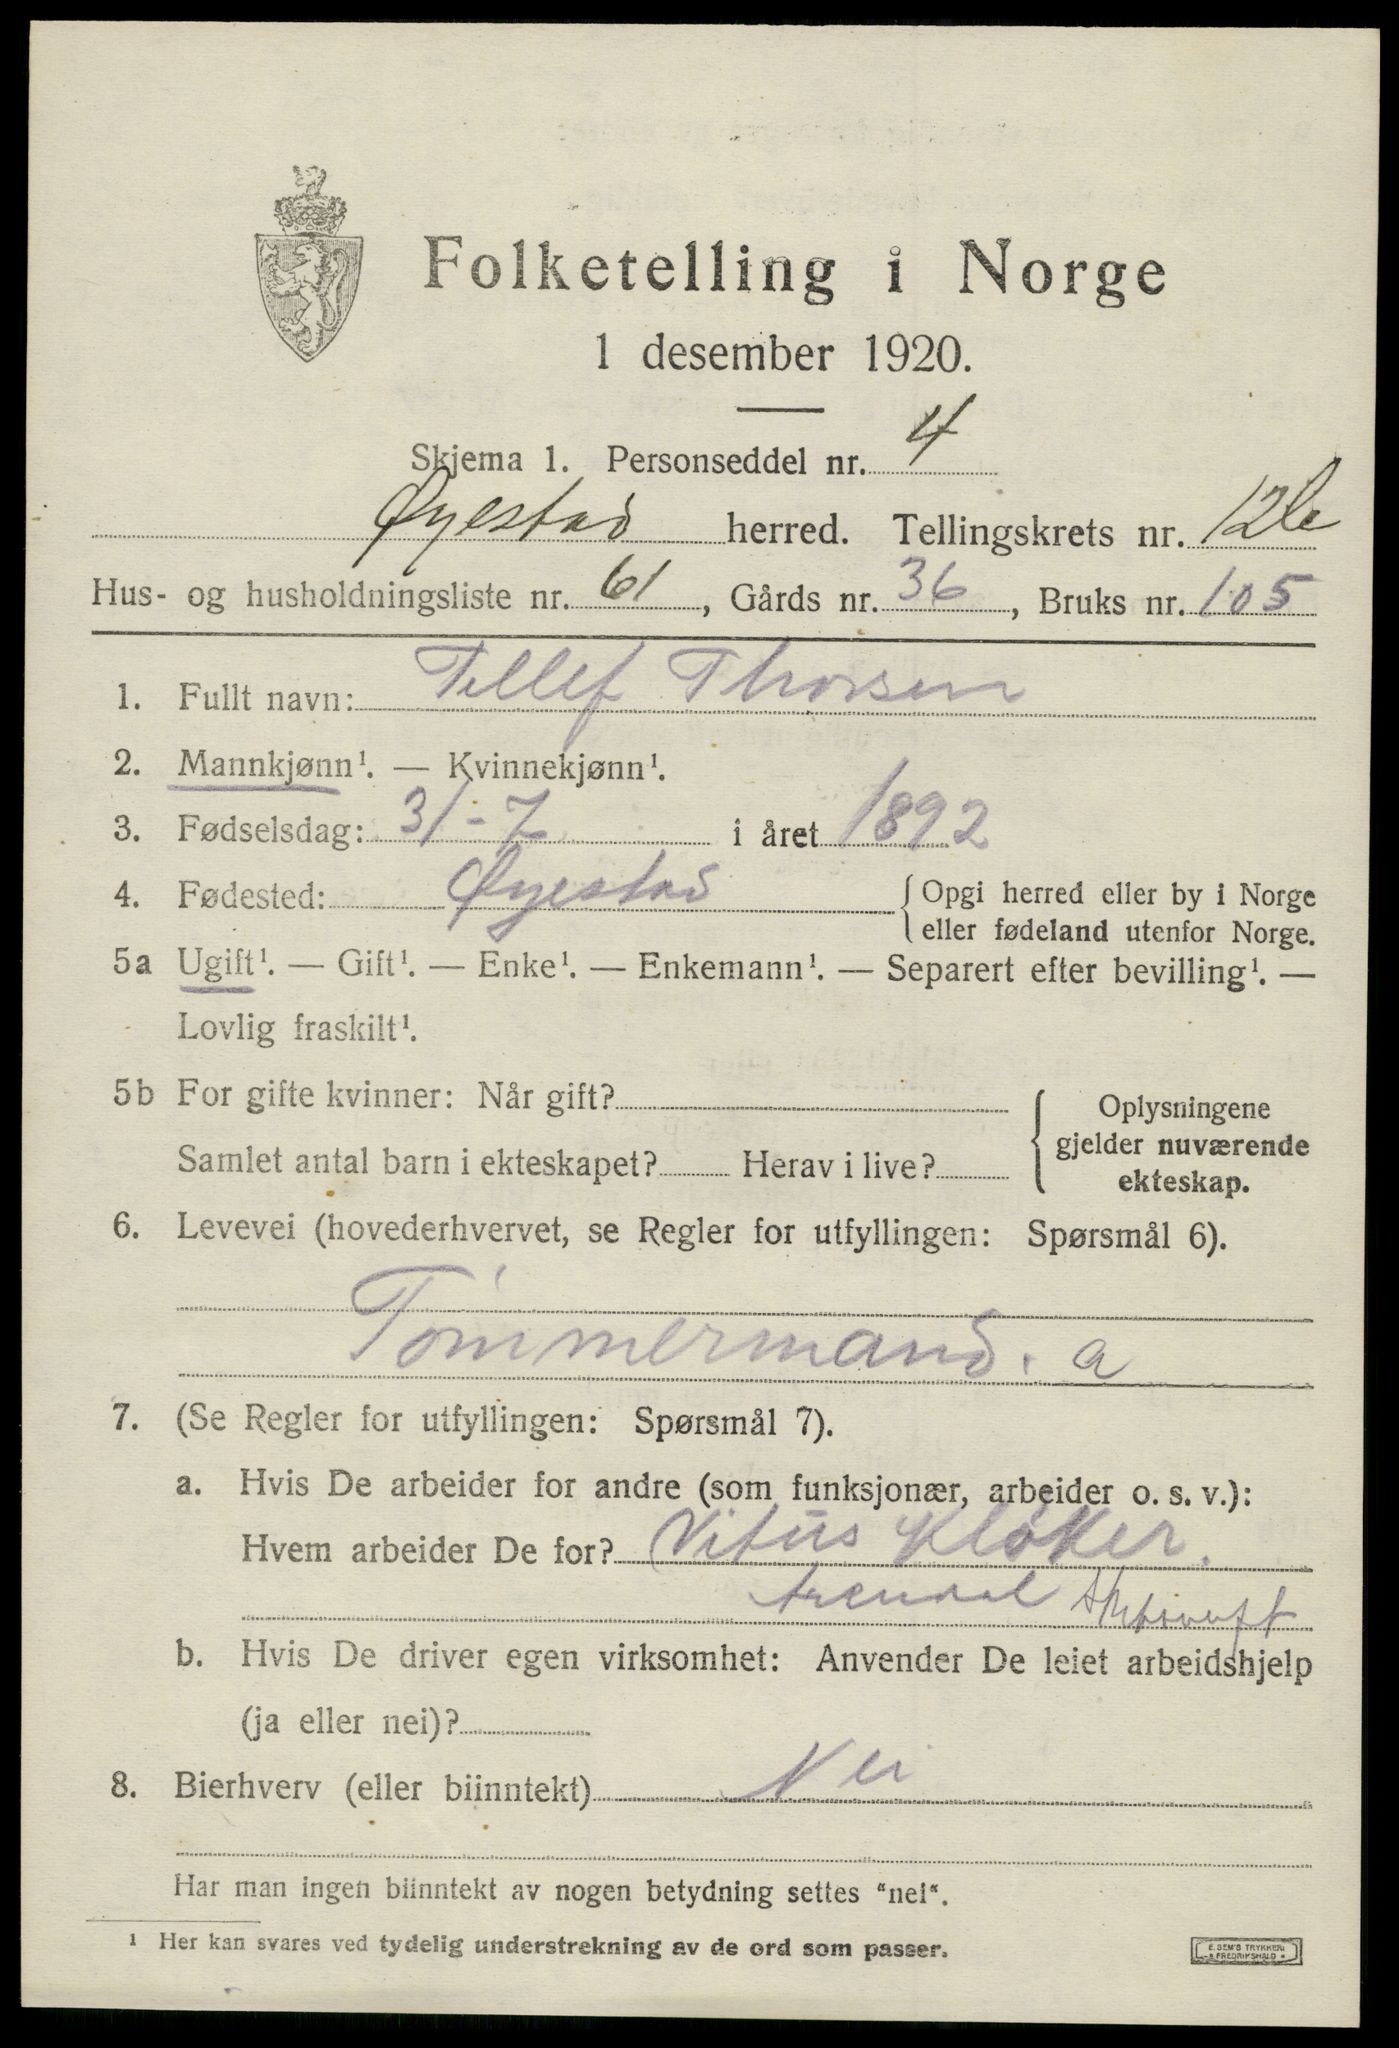 Folketelling i Norge
1 desember 1920.
Skjema 1. Personseddel nr. 4
Øyestad herred. Tellingskrets nr. 12b
Hus- og husholdningsliste nr. 61, Gårds nr. 36, Bruks nr. 105
1. Fullt navn: Tellef Thorsen
2. Mannkjønn¹. — Kvinnekjønn¹.
3. Fødselsdag: 31-7 i året 1892
4. Fødested: Øyestad {Opgi herred eller by i Norge
eller fødeland utenfor Norge.
5a Ugift¹. — Gift¹. — Enke¹. — Enkemann¹. — Separert efter bevilling¹. —
Lovlig fraskilt¹.
5b For gifte kvinner: Når gift?
Samlet antal barn i ekteskapet? Herav i live?
{ Oplysningene
gjelder nuværende
ekteskap.
6. Levevei (hovederhvervet, se Regler for utfyllingen: Spørsmål 6).
Tømmermand. a
7. (Se Regler for utfyllingen: Spørsmål 7).
a. Hvis De arbeider for andre (som funksjonær, arbeider o. s. v.):
Hvem arbeider De for? Vitus Kløker.
Arendal
b. Hvis De driver egen virksomhet: Anvender De leiet arbeidshjelp
(ja eller nei)?
8. Bierhverv (eller biinntekt) Nei
Har man ingen biinntekt av nogen betydning settes "nei".
¹ Her kan svares ved tydelig understrekning av de ord som passer.
E. SEM'S TRYKKERI
FREDRIKSHALD